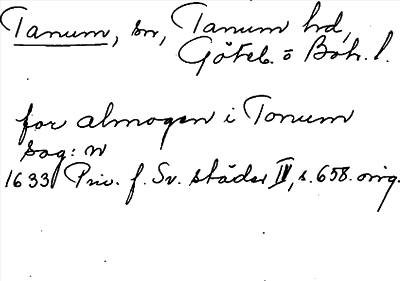 Tanum, sn, Tanum hd,
Göteb. o Boh. l.
for almogen i Tonum
sog: n
1633 Priv. f. Sv. städer IV, s. 658. orig.